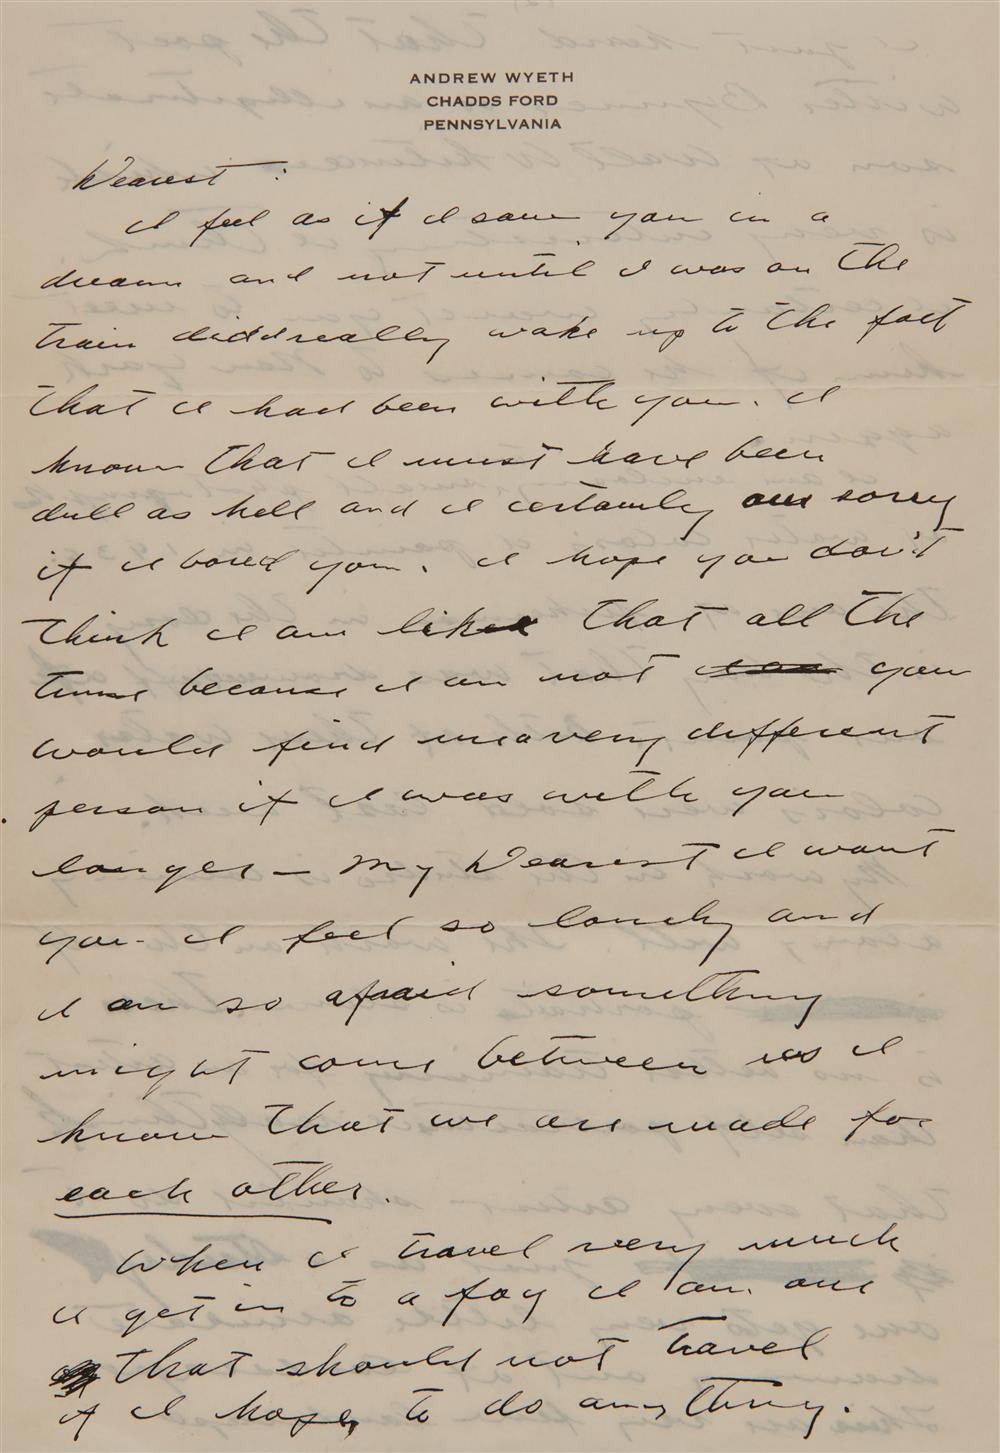 ANDREW WYETH
CHADDS FORD
PENNSYLVANIA
Dearest :
I feel as if I saw you in a
dream and not until I was on the
train did I really wake up to the fact
that I had been with you. I
know that I must have been
dull as hell and I certainly am sorry
if I bored you. I hope you don't
think I am like that all the
time because I am not you
would find me a very different
person if I was with you
longer — My Dearest I want
you - I feel so lonely and
I am so afraid something
might come between us I
know that we are made for
each other.
When I travel very much
I get in to a fog I am one
that should not travel
if I hope to do any thing.